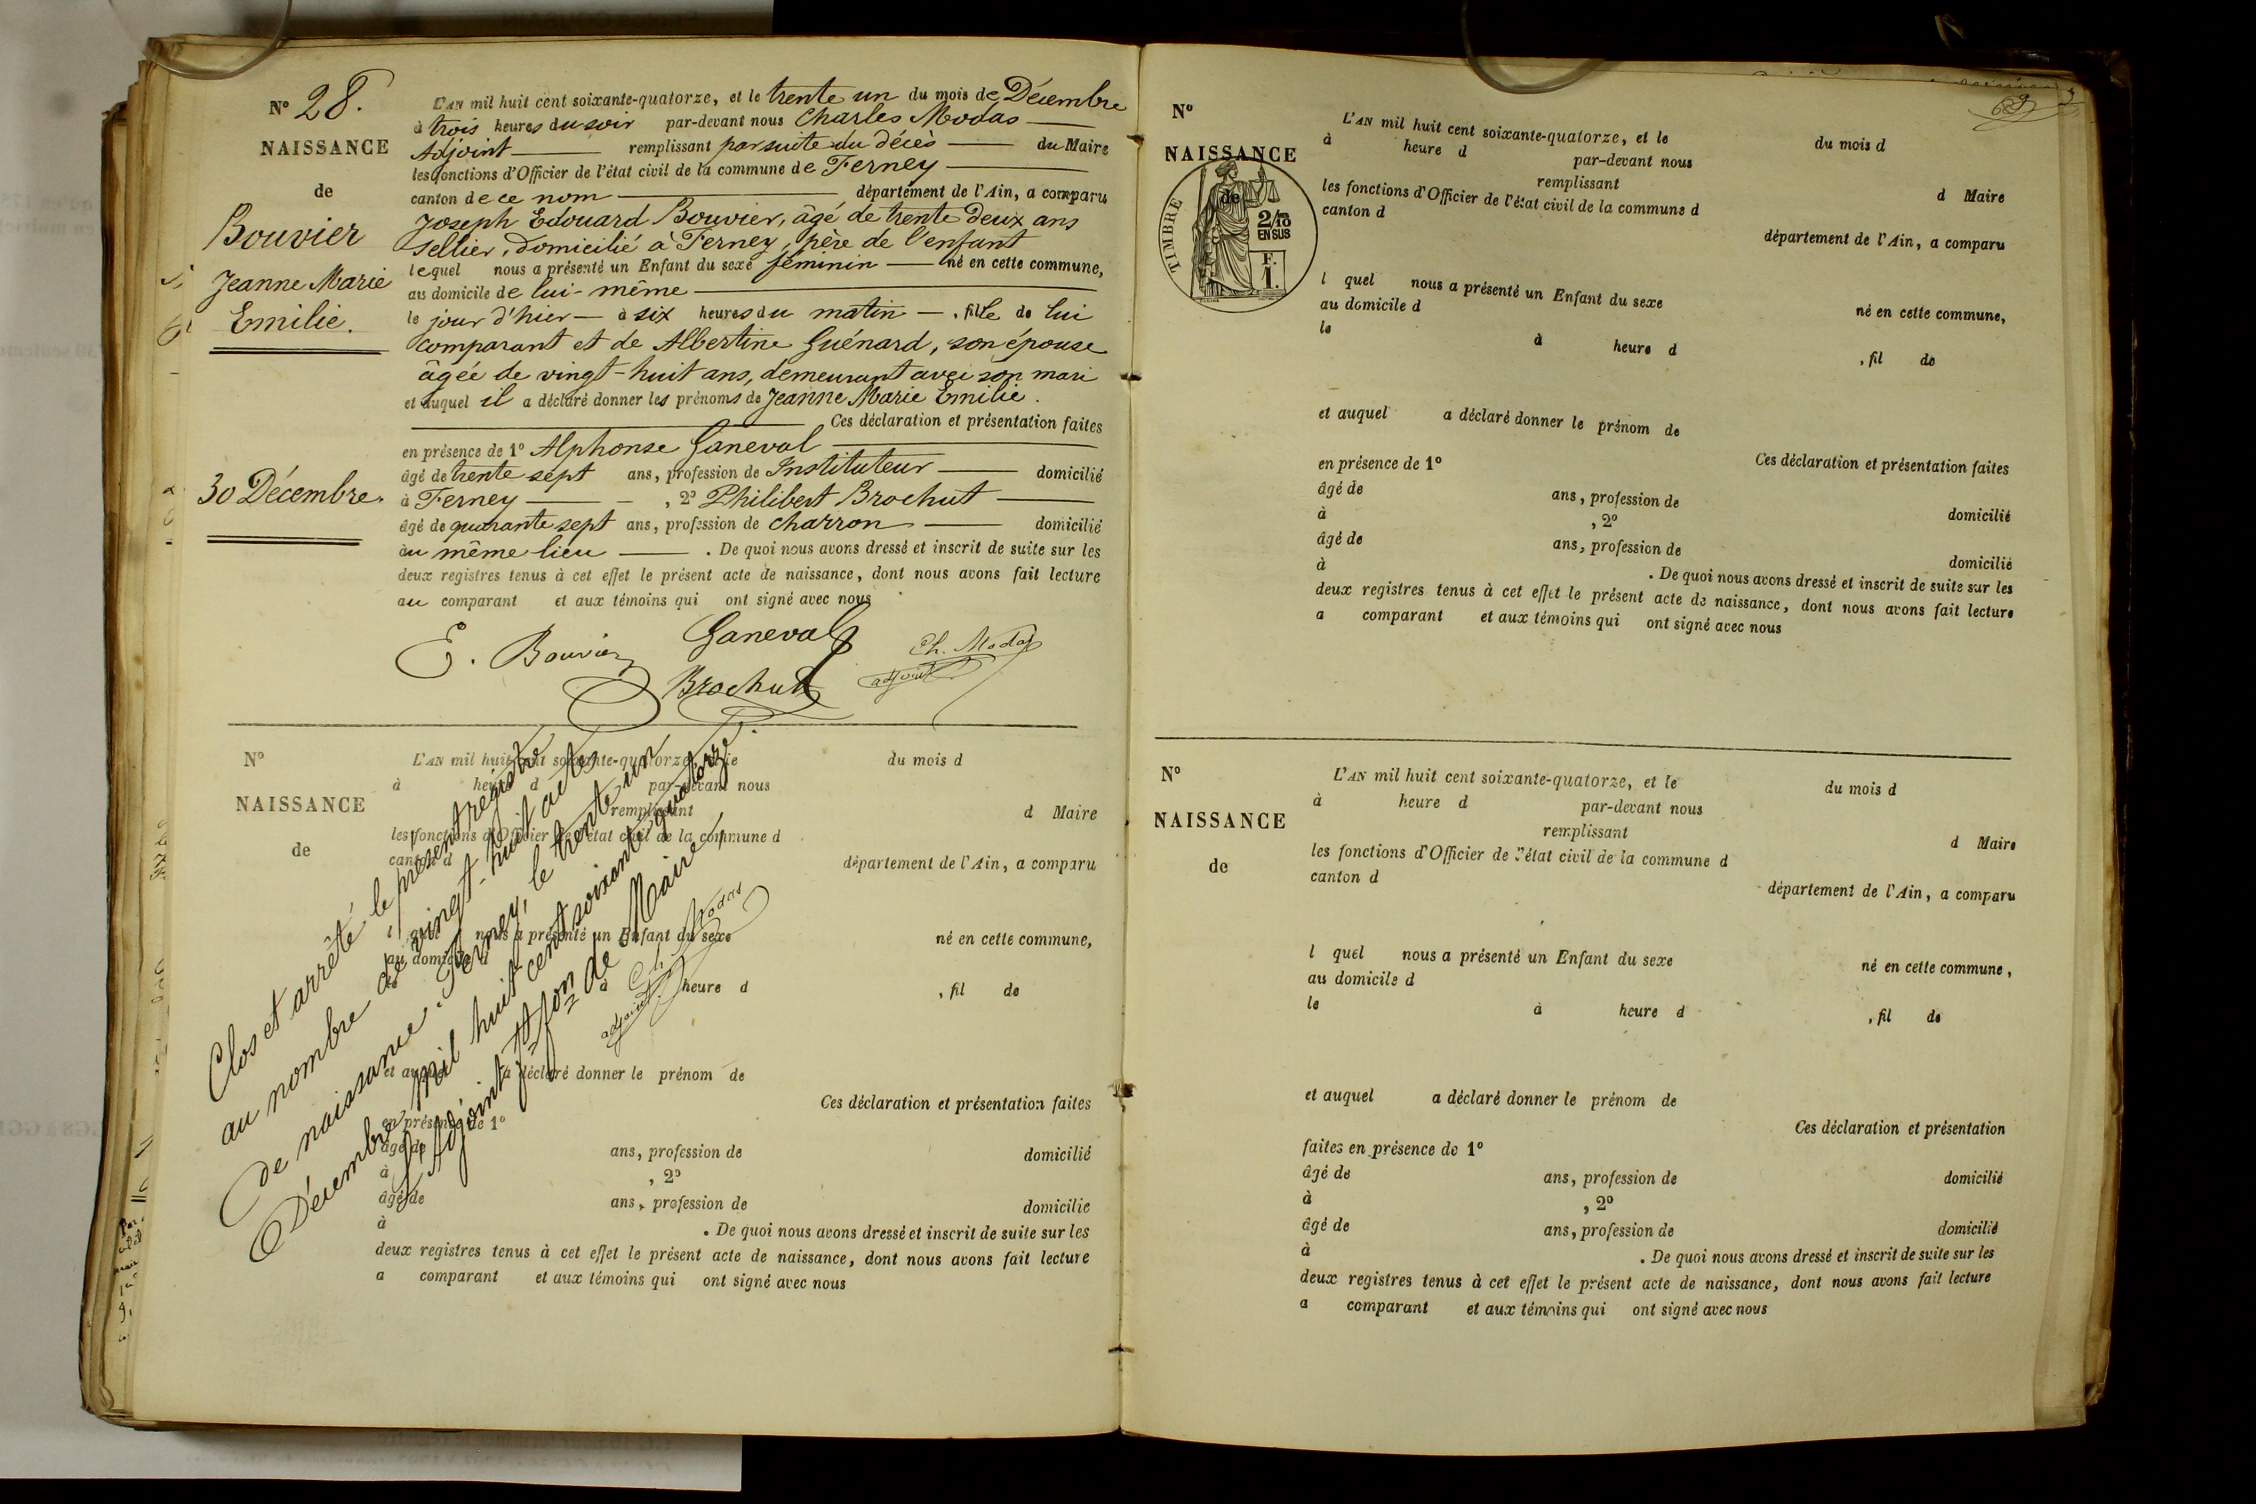 N° 28.
NAISSANCE
de
Bouvier
Jeanne Marie
Emilie.
30 Décembre.
L'AN mil huit cent soixante-quatorze, et le trente un du mois de Décembre
à trois heures du soir par-devant nous Charles Modas
Adjoint remplissant par suite du décès du Maire
les fonctions d'Officier de l'état civil de la commune de Ferney
canton de ce nom département de l'Ain, a comparu
Joseph Edouard Bouvier, âgé de trente deux ans
sellier, domicilié à Ferney, père de l'enfant
lequel nous a présenté un Enfant du sexe féminin né en cette commune,
au domicile de lui-même
le jour d'hier à six heures du matin , fille de lui
comparant et de Albertine Guénard, son épouse
âgée de vingt-huit ans, demeurant avec son mari
et auquel il a déclaré donner les prénoms de Jeanne Marie Emilie.
Ces déclaration et présentation faites
en présence de 1° Alphonse Ganeval
âgé de trente sept ans, profession de Instituteur domicilié
à Ferney , 2° Philibert Brochut
âgé de quarante sept ans, profession de charron domicilié
au même lieu . De quoi nous avons dressé et inscrit de suite sur les
deux registres tenus à cet effet le présent acte de naissance, dont nous avons fait lecture
au comparant et aux témoins qui ont signé avec nous
E. Bouvier
Ganeval
Brochut
Ch. Modas
adjoint
N°
NAISSANCE
de
L'AN mil huit cent soixante-quatorze, et le du mois d
à heure d par-devant nous
remplissant d Maire
les fonctions d'Officier de l'état civil de la commune d
canton d département de l'Ain, a comparu
l quel nous a présenté un Enfant du sexe né en cette commune,
au domicile d
le à heure d , fil de
et auquel a déclaré donner le prénom de
Ces déclaration et présentation faites
en présence de 1°
âgé de ans, profession de domicilié
à , 2°
âgé de ans, profession de domicilié
à . De quoi nous avons dressé et inscrit de suite sur les
deux registres tenus à cet effet le présent acte de naissance, dont nous avons fait lecture
a comparant et aux témoins qui ont signé avec nous
Clos et arrêté le présent registre
au nombre de vingt-huit actes
de naissance. Ferney, le trente un
Décembre mil huit cent soixante quatorze.
L'Adjoint ff fon de Maire,
Ch. Modas
adjoint
N°
NAISSANCE
de
TIMBRE
2/10
EN SUS
F.
1.
L'AN mil huit cent soixante-quatorze, et le du mois d
à heure d par-devant nous
remplissant d Maire
les fonctions d'Officier de l'état civil de la commune d
canton d département de l'Ain, a comparu
l quel nous a présenté un Enfant du sexe né en cette commune,
au domicile d
le à heure d , fil de
et auquel a déclaré donner le prénom de
Ces déclaration et présentation faites
en présence de 1°
âgé de ans, profession de domicilié
à , 2°
âgé de ans, profession de domicilié
à . De quoi nous avons dressé et inscrit de suite sur les
deux registres tenus à cet effet le présent acte de naissance, dont nous avons fait lecture
a comparant et aux témoins qui ont signé avec nous
N°
NAISSANCE
de
L'AN mil huit cent soixante-quatorze, et le du mois d
à heure d par-devant nous
remplissant d Maire
les fonctions d'Officier de l'état civil de la commune d
canton d département de l'Ain, a comparu
l quel nous a présenté un Enfant du sexe né en cette commune,
au domicile d
le à heure d , fil de
et auquel a déclaré donner le prénom de
Ces déclaration et présentation
faites en présence de 1°
âgé de ans, profession de domicilié
à , 2°
âgé de ans, profession de domicilié
à . De quoi nous avons dressé et inscrit de suite sur les
deux registres tenus à cet effet le présent acte de naissance, dont nous avons fait lecture
a comparant et aux témoins qui ont signé avec nous